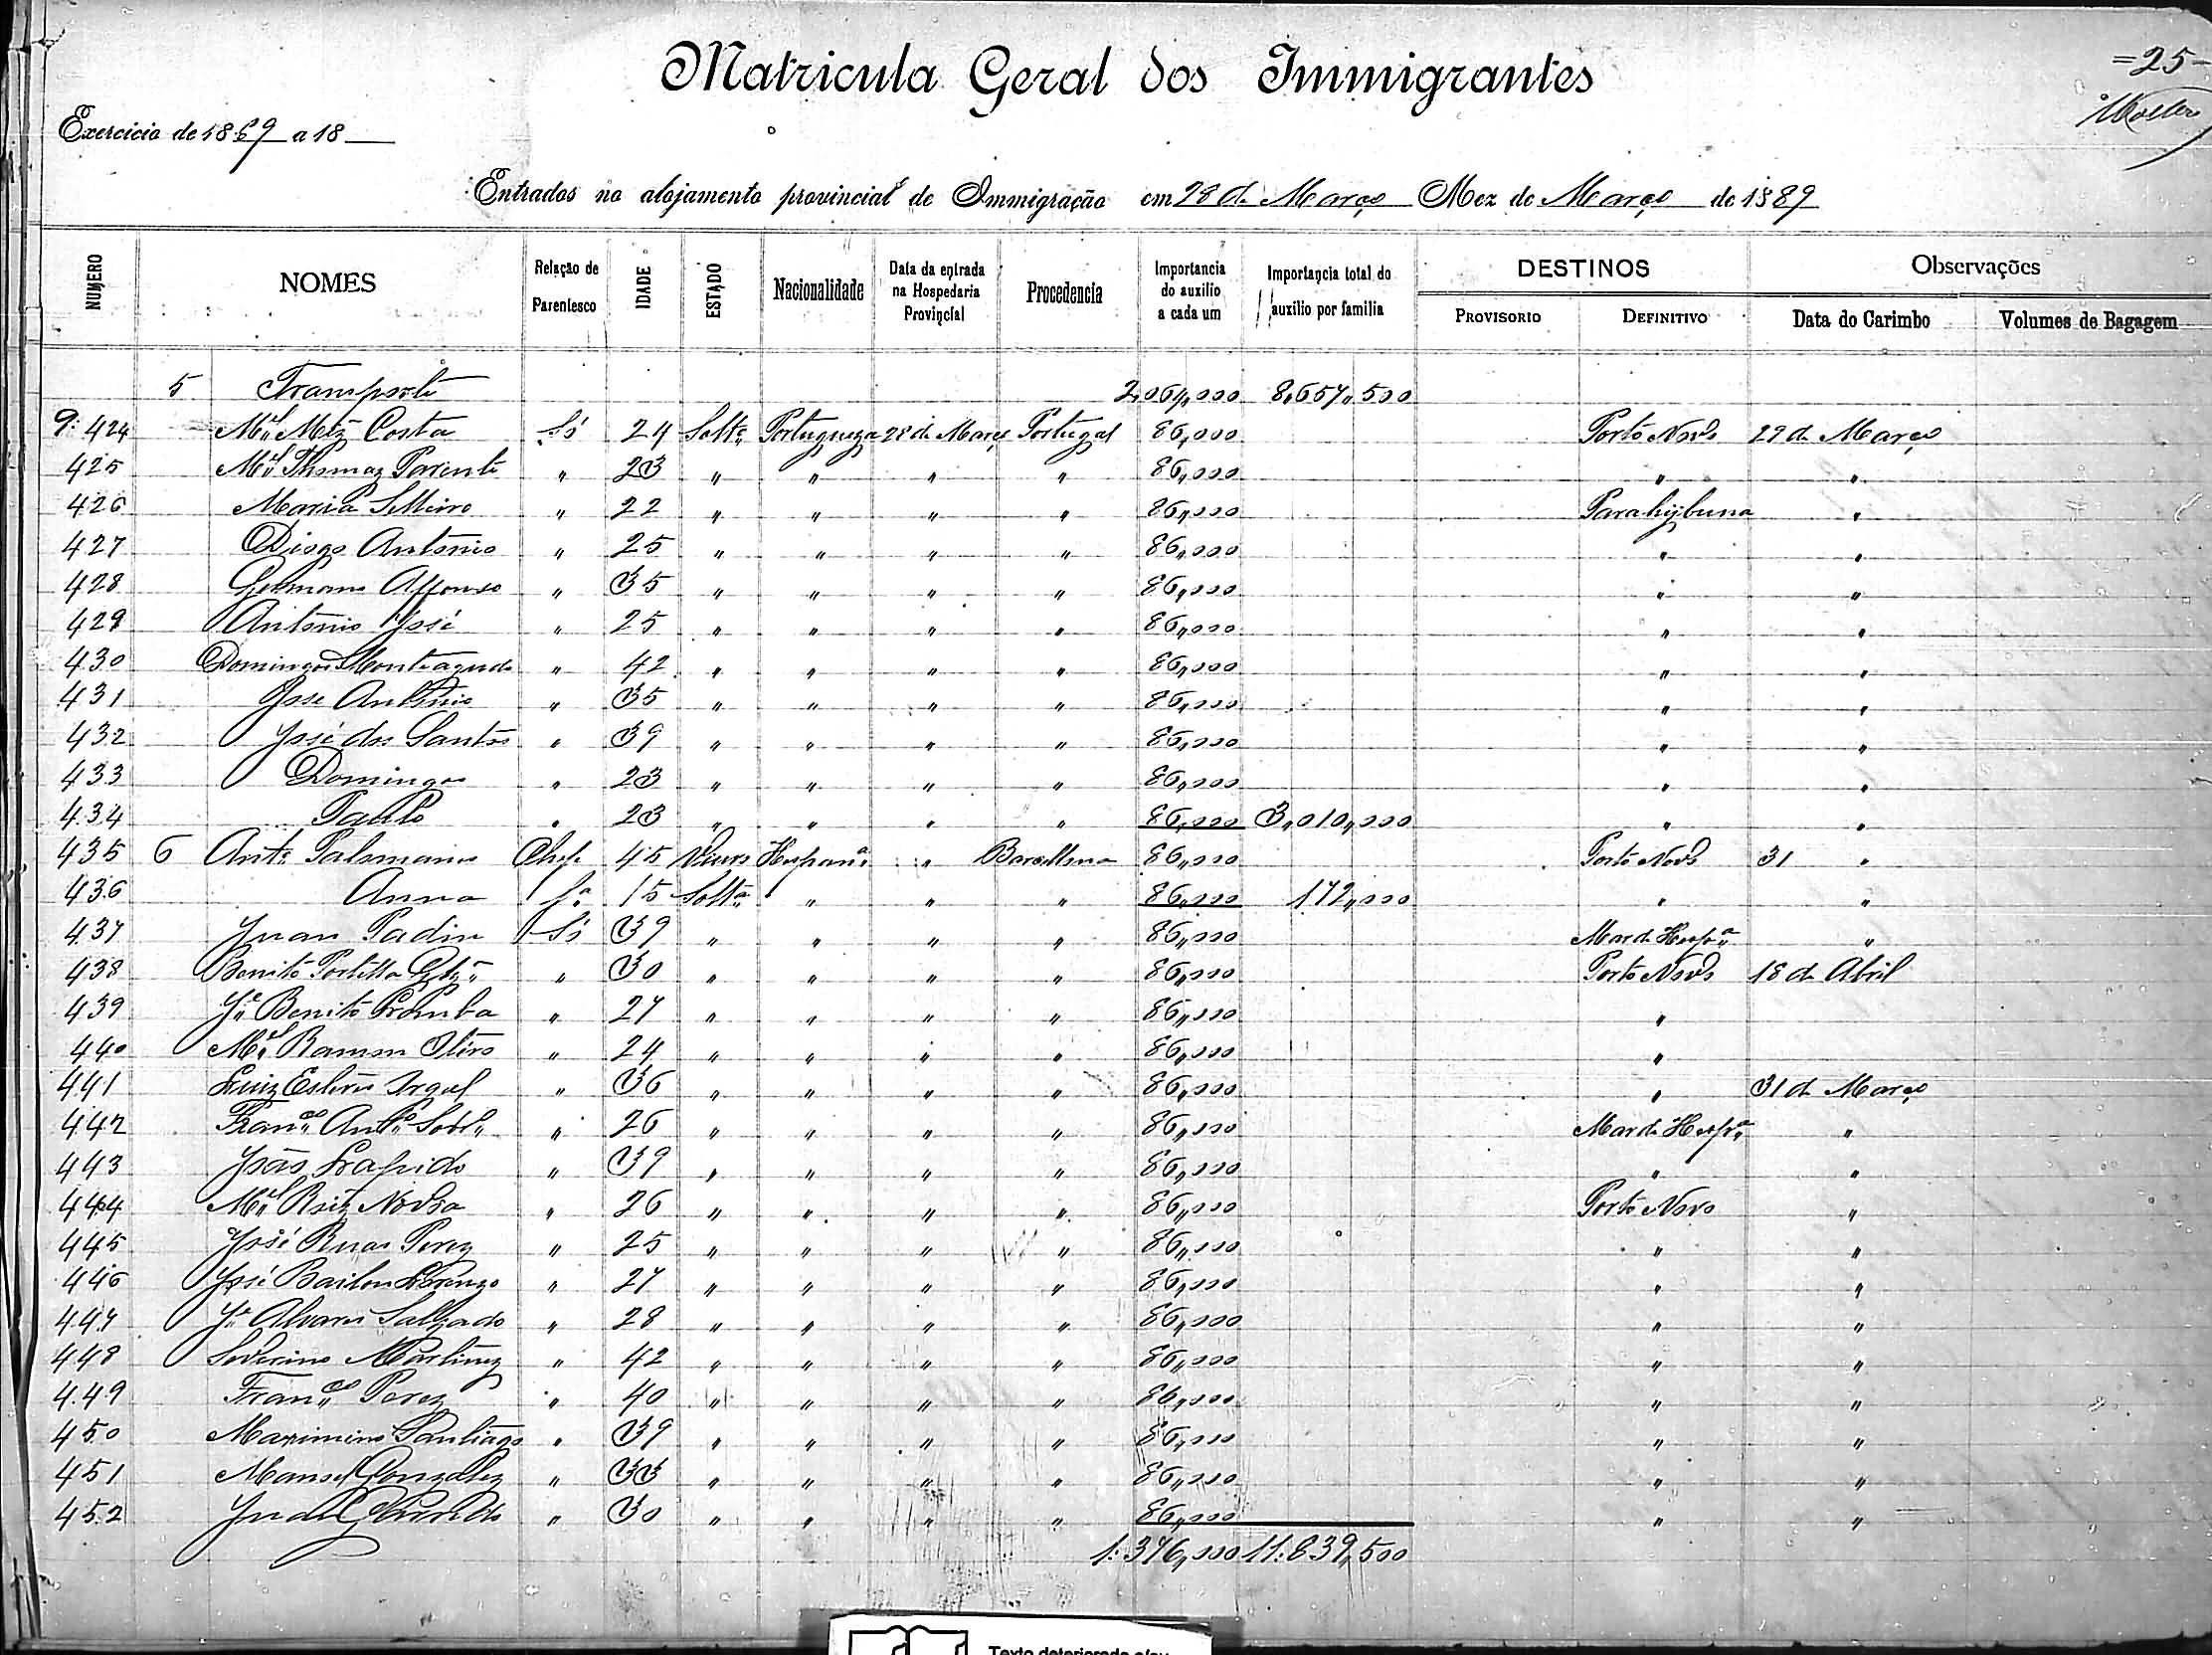 =25=
Matricula Geral dos Immigrantes
Exercicio de 1889 a 18
Entrados no alojamento provincial de Immigração em 28 de Março Mez de Março de 1889
NUMERO NOMES Relação de Parentesco IDADE ESTADO Nacionalidade Data da entrada na Hospedaria Provincial Procedencia Importancia do auxilio a cada um Importancia total do auxilio por familia DESTINOS PROVISORIO DEFINITIVO Observações Data do Carimbo Volumes de Bagagem
5 Transporte 2,064,000 8,657,500
9: 424 Mel Mez Costa Só 24 Solto Portugueza 28 de Março Portugal 86,000 Porto Novo 29 de Março
425 Mel Thomaz Parente " 23 " " " " 86,000 " "
426 Maria " 22 " " " " 86,000 Parahybuna "
427 Diogo Antonio " 25 " " " " 86,000 " "
428 Germano Affonso " 35 " " " " 86,000 " "
429 Antonio José " 25 " " " " 86,000 " "
430 Domingos Monteagudo " 42 " " " " 86,000 " "
431 José Antonio " 35 " " " " 86,000 " "
432 José dos Santos " 39 " " " " 86,000 " "
433 Domingos " 23 " " " " 86,000 " "
434 Paulo " 23 " " " " 86,000 3,010,000 " "
435 6 Anto Palomanes Chefe 45 Viuvo Hespana " Barcellona 86,000 Porto Novo 31 "
436 Anna fa 15 Solta " " " 86,000 172,000 " "
437 Juan Padin Só 39 " " " " 86,000 Mar de Hespa "
438 Benito Portella " 30 " " " " 86,000 Porto Novo 18 de Abril
439 Je Benito " 27 " " " " 86,000 "
440 Mel Ramon Otero " 24 " " " " 86,000 "
441 Luiz Esteves " 36 " " " " 86,000 " 31 de Março
442 Franco Anto " 26 " " " " 86,000 Mar de Hespa "
443 João Lapido " 39 " " " " 86,000 " "
444 Mel Ruiz Novoa " 26 " " " " 86,000 Porto Novo "
445 José Ruas Perez " 25 " " " " 86,000 " "
446 José Bailon Lorenzo " 27 " " " " 86,000 " "
447 Je Alvares Salgado " 28 " " " " 86,000 " "
448 Severino Martinez " 42 " " " " 86,000 " "
449 Franco Perez " 40 " " " " 86,000 " "
450 Maximino Santiago " 39 " " " " 86,000 " "
451 Manoel Gonzalez " 33 " " " " 86,000 " "
452 " 30 " " " " 86,000 " "
1:376,000 11:839,500